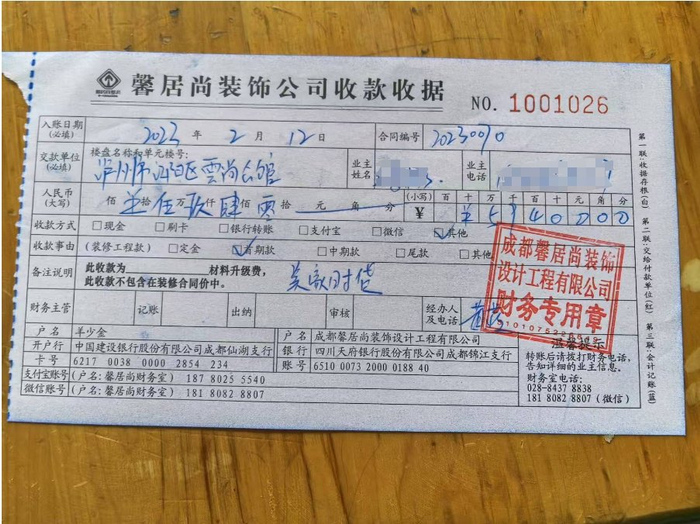 馨居尚装饰公司收款收据
NO. 1001026
入账日期 (必填) 2023 年 2 月 12 日 合同编号 2023090
交款单位 (必填) 楼盘名称和单元楼号: 业主姓名 业主电话
云尚公馆
人民币 (大写) 佰 拾 伍 肆 零 拾 元 角 分 (小写) ¥ 百 十 万 千 百 十 元 角 分
5 4 0 0 0 0
收款方式 □现金 □刷卡 □银行转账 □支付宝 □微信 ☑其他
收款事由 (装修工程款) □定金 ☑首期款 □中期款 □尾款 □其他
备注说明 此收款为 材料升级费,
此收款不包含在装修合同价中。
财务主管 记账 出纳 审核 经办人及电话
成都馨居尚装饰
设计工程有限公司
财务专用章
户名 羊少金 户名 成都馨居尚装饰设计工程有限公司
开户行 中国建设银行股份有限公司成都仙湖支行 银行 四川天府银行股份有限公司成都锦江支行
卡号 6217 0038 0000 2854 234 账号 6510 0073 2000 0188 40
支付宝账号 (户名: 馨居尚财务室) 187 8025 5540
微信账号 (户名: 馨居尚财务室) 181 8082 8807
温馨提示
转账后请拨打财务电话,
告知详细的业主信息。
财务室电话:
028-8437 8838
181 8082 8807 (微信)
第一联:收据存根(白) 第二联:交给付款单位(红) 第三联:会计记账(蓝)